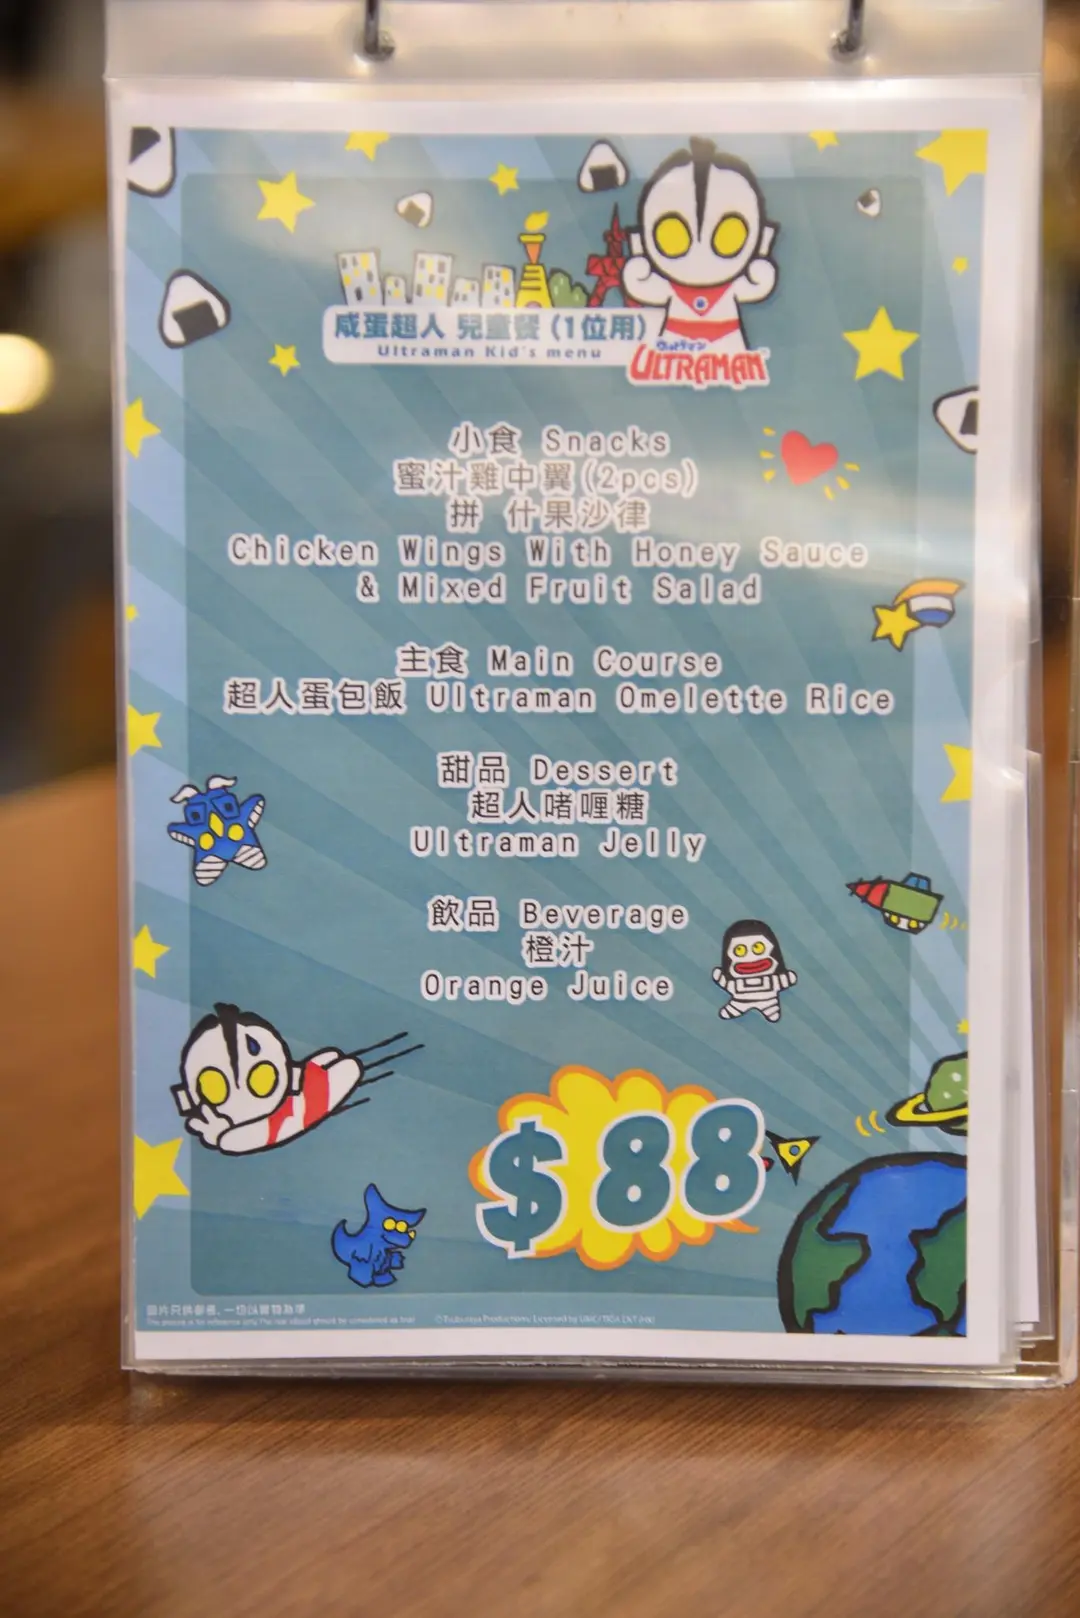 咸蛋超人 兒童餐 (1位用)
Ultraman Kid's menu
ウルトラマン
ULTRAMAN
小食 Snacks
蜜汁雞中翼(2pcs)
拼 什果沙律
Chicken Wings With Honey Sauce
& Mixed Fruit Salad
主食 Main Course
超人蛋包飯 Ultraman Omelette Rice
甜品 Dessert
超人啫喱糖
Ultraman Jelly
飲品 Beverage
橙汁
Orange Juice
$88
圖片只供參考，一切以實物為準
©Tsuburaya Productions Licensed by